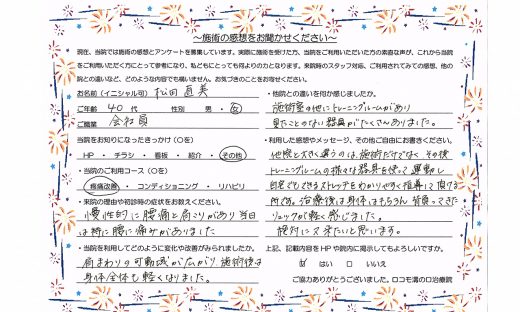 ～施術の感想をお聞かせください～
現在、当院では施術の感想とアンケートを募集しています。実際に施術を受けた方、当院をご利用いただいた方の素直な声が、これから当院
をご利用いただく方にとって参考になり、私どもにとっても何よりの力となります。来院時のスタッフ対応、ご利用されてみての感想、他の
院との違いなど、どのような内容でも構いません。お気づきのことをお寄せください。
お名前（イニシャル可） 松田 直美
ご年齢 40 代 性別 男・女
ご職業 会社員
当院をお知りになったきっかけ（○を）
HP ・ チラシ ・ 看板 ・ 紹介 ・ その他
・当院のご利用コース（○を）
疼痛改善 ・ コンディショニング ・ リハビリ
・来院の理由や初診時の症状をお教えください。
慢性的に腰痛と肩こりがあり当日
は特に腰に痛みがありました
・当院を利用してどのように変化や改善がみられましたか。
肩まわりの可動域が広がり、施術後は
身体全体も軽くなりました。
・他院との違いを何か感じましたか。
施術室の他にトレーニングルームがあり
見たことのない器具がたくさんありました。
・利用した感想やメッセージ、その他ご自由にお書きください。
他院と大きく違うのは、施術だけでなく、その後
トレーニングルームの様々な器具を使って運動し
自宅でもできるストレッチをわかりやすく指導して頂ける
所です。治療後は身体はもちろん、背負ってきた
リュックが軽く感じました。
絶対にまた来たいと思います。
上記、記載内容をHPや院内に掲示してもよろしいですか。
はい □ いいえ
ご協力ありがとうございました。ロコモ溝の口治療院